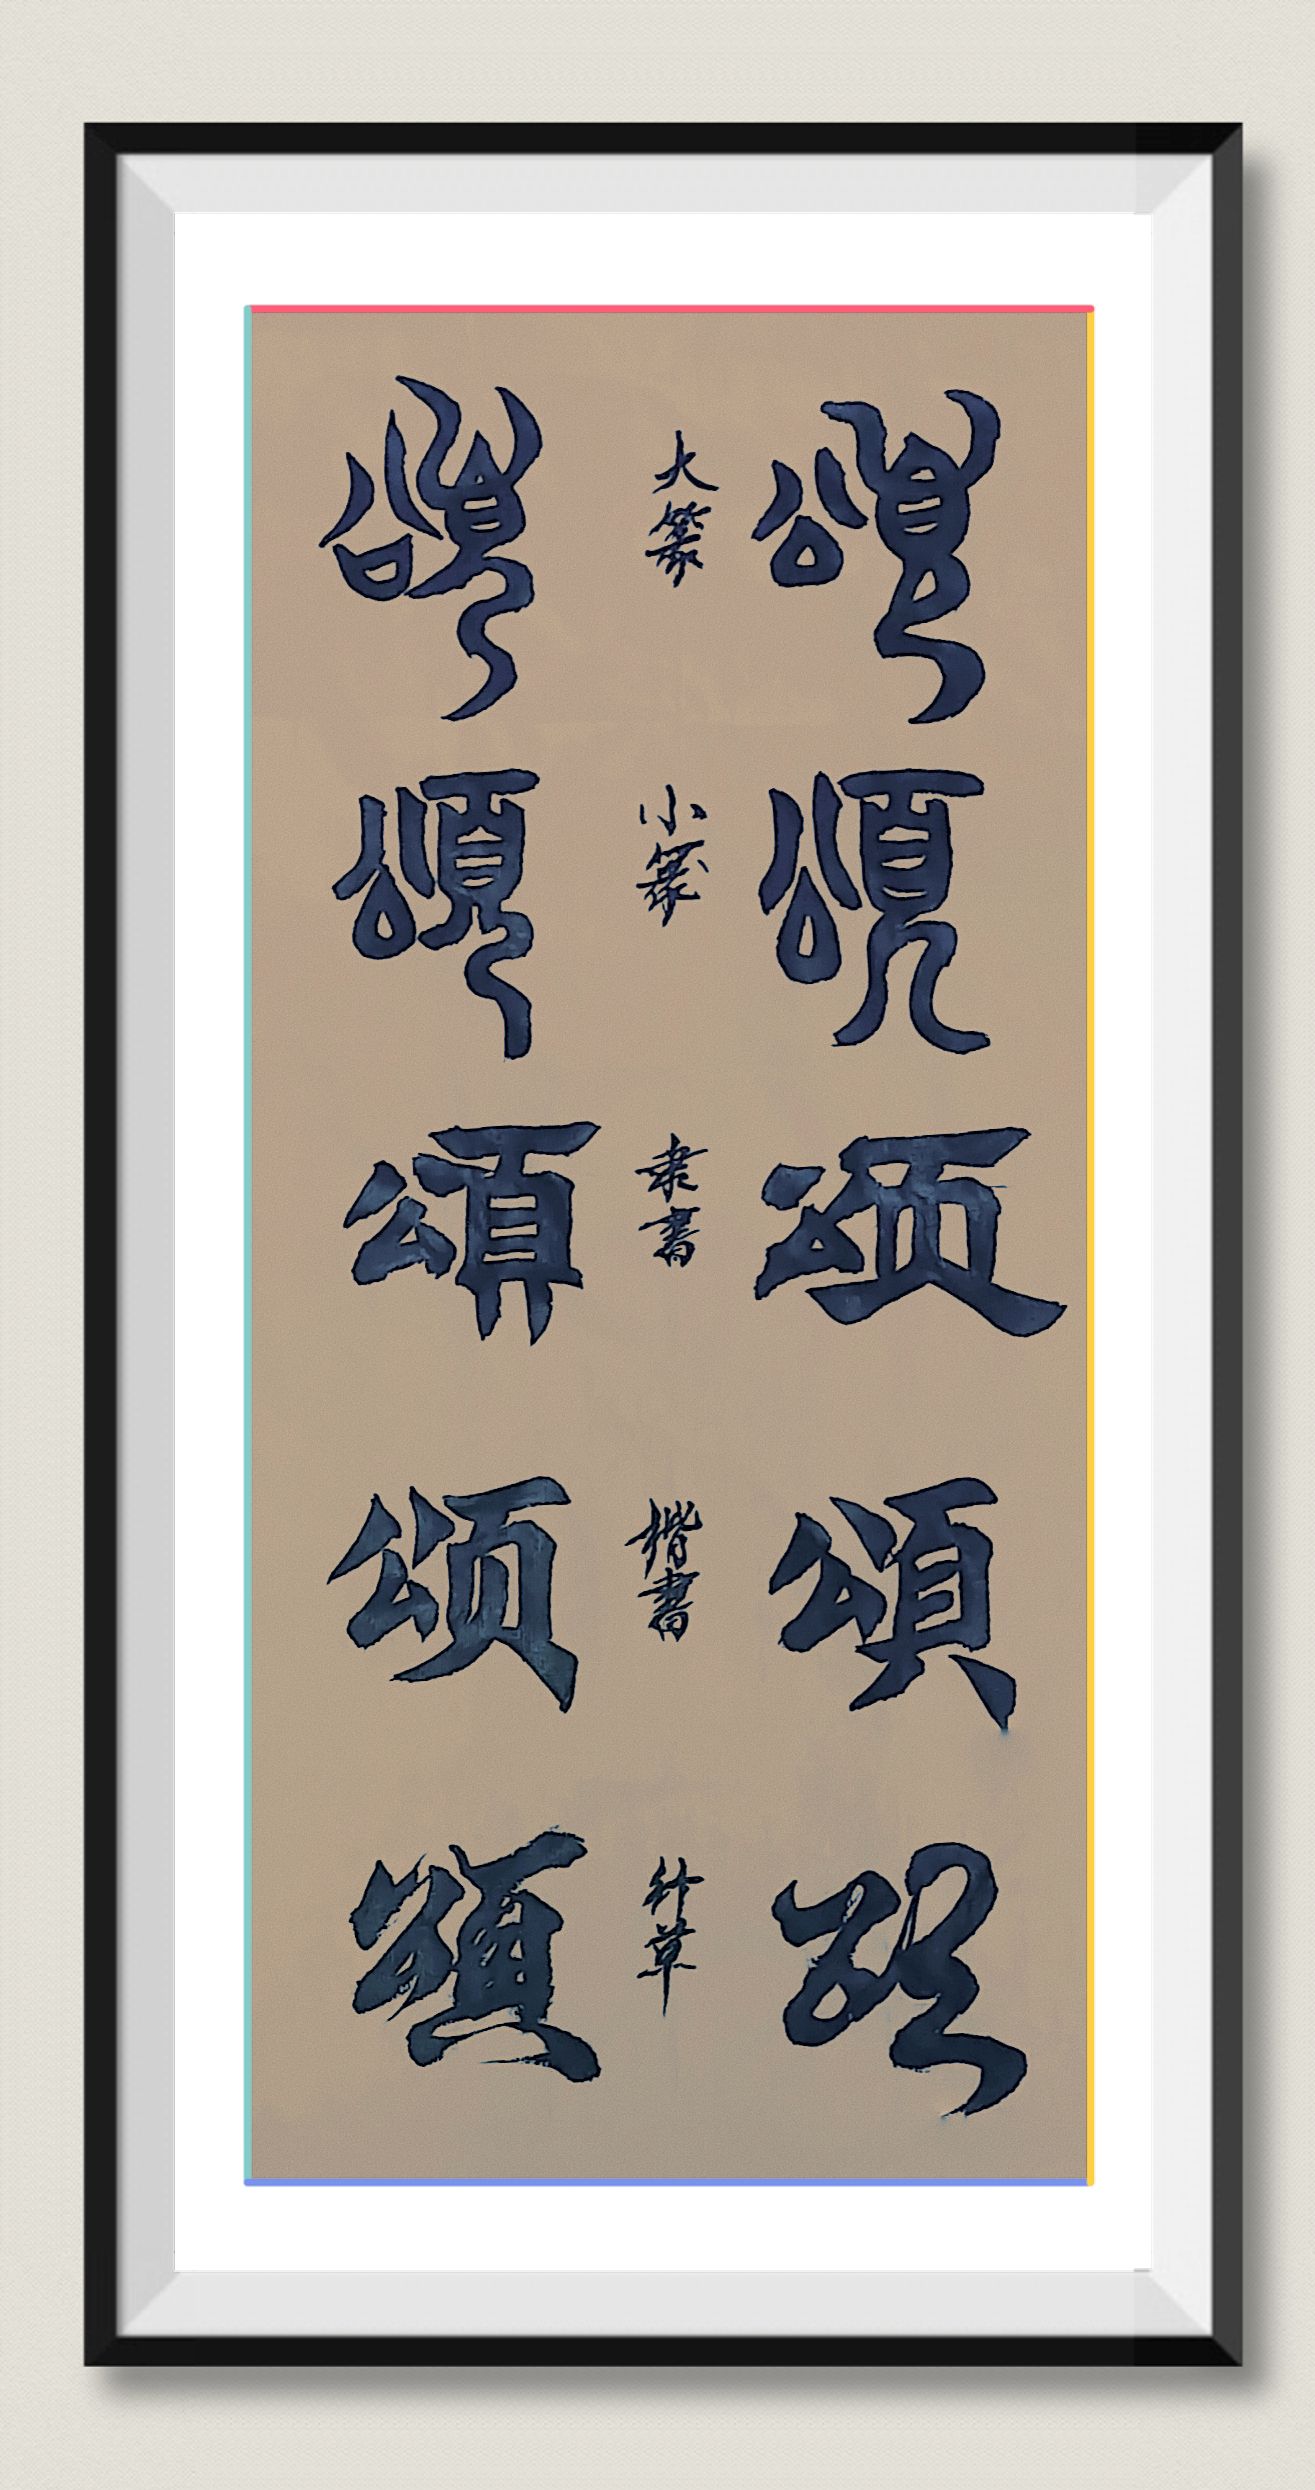 頌頌颂頌颂
大篆
小篆
隶書
楷書
行草
頌頌頌颂頌